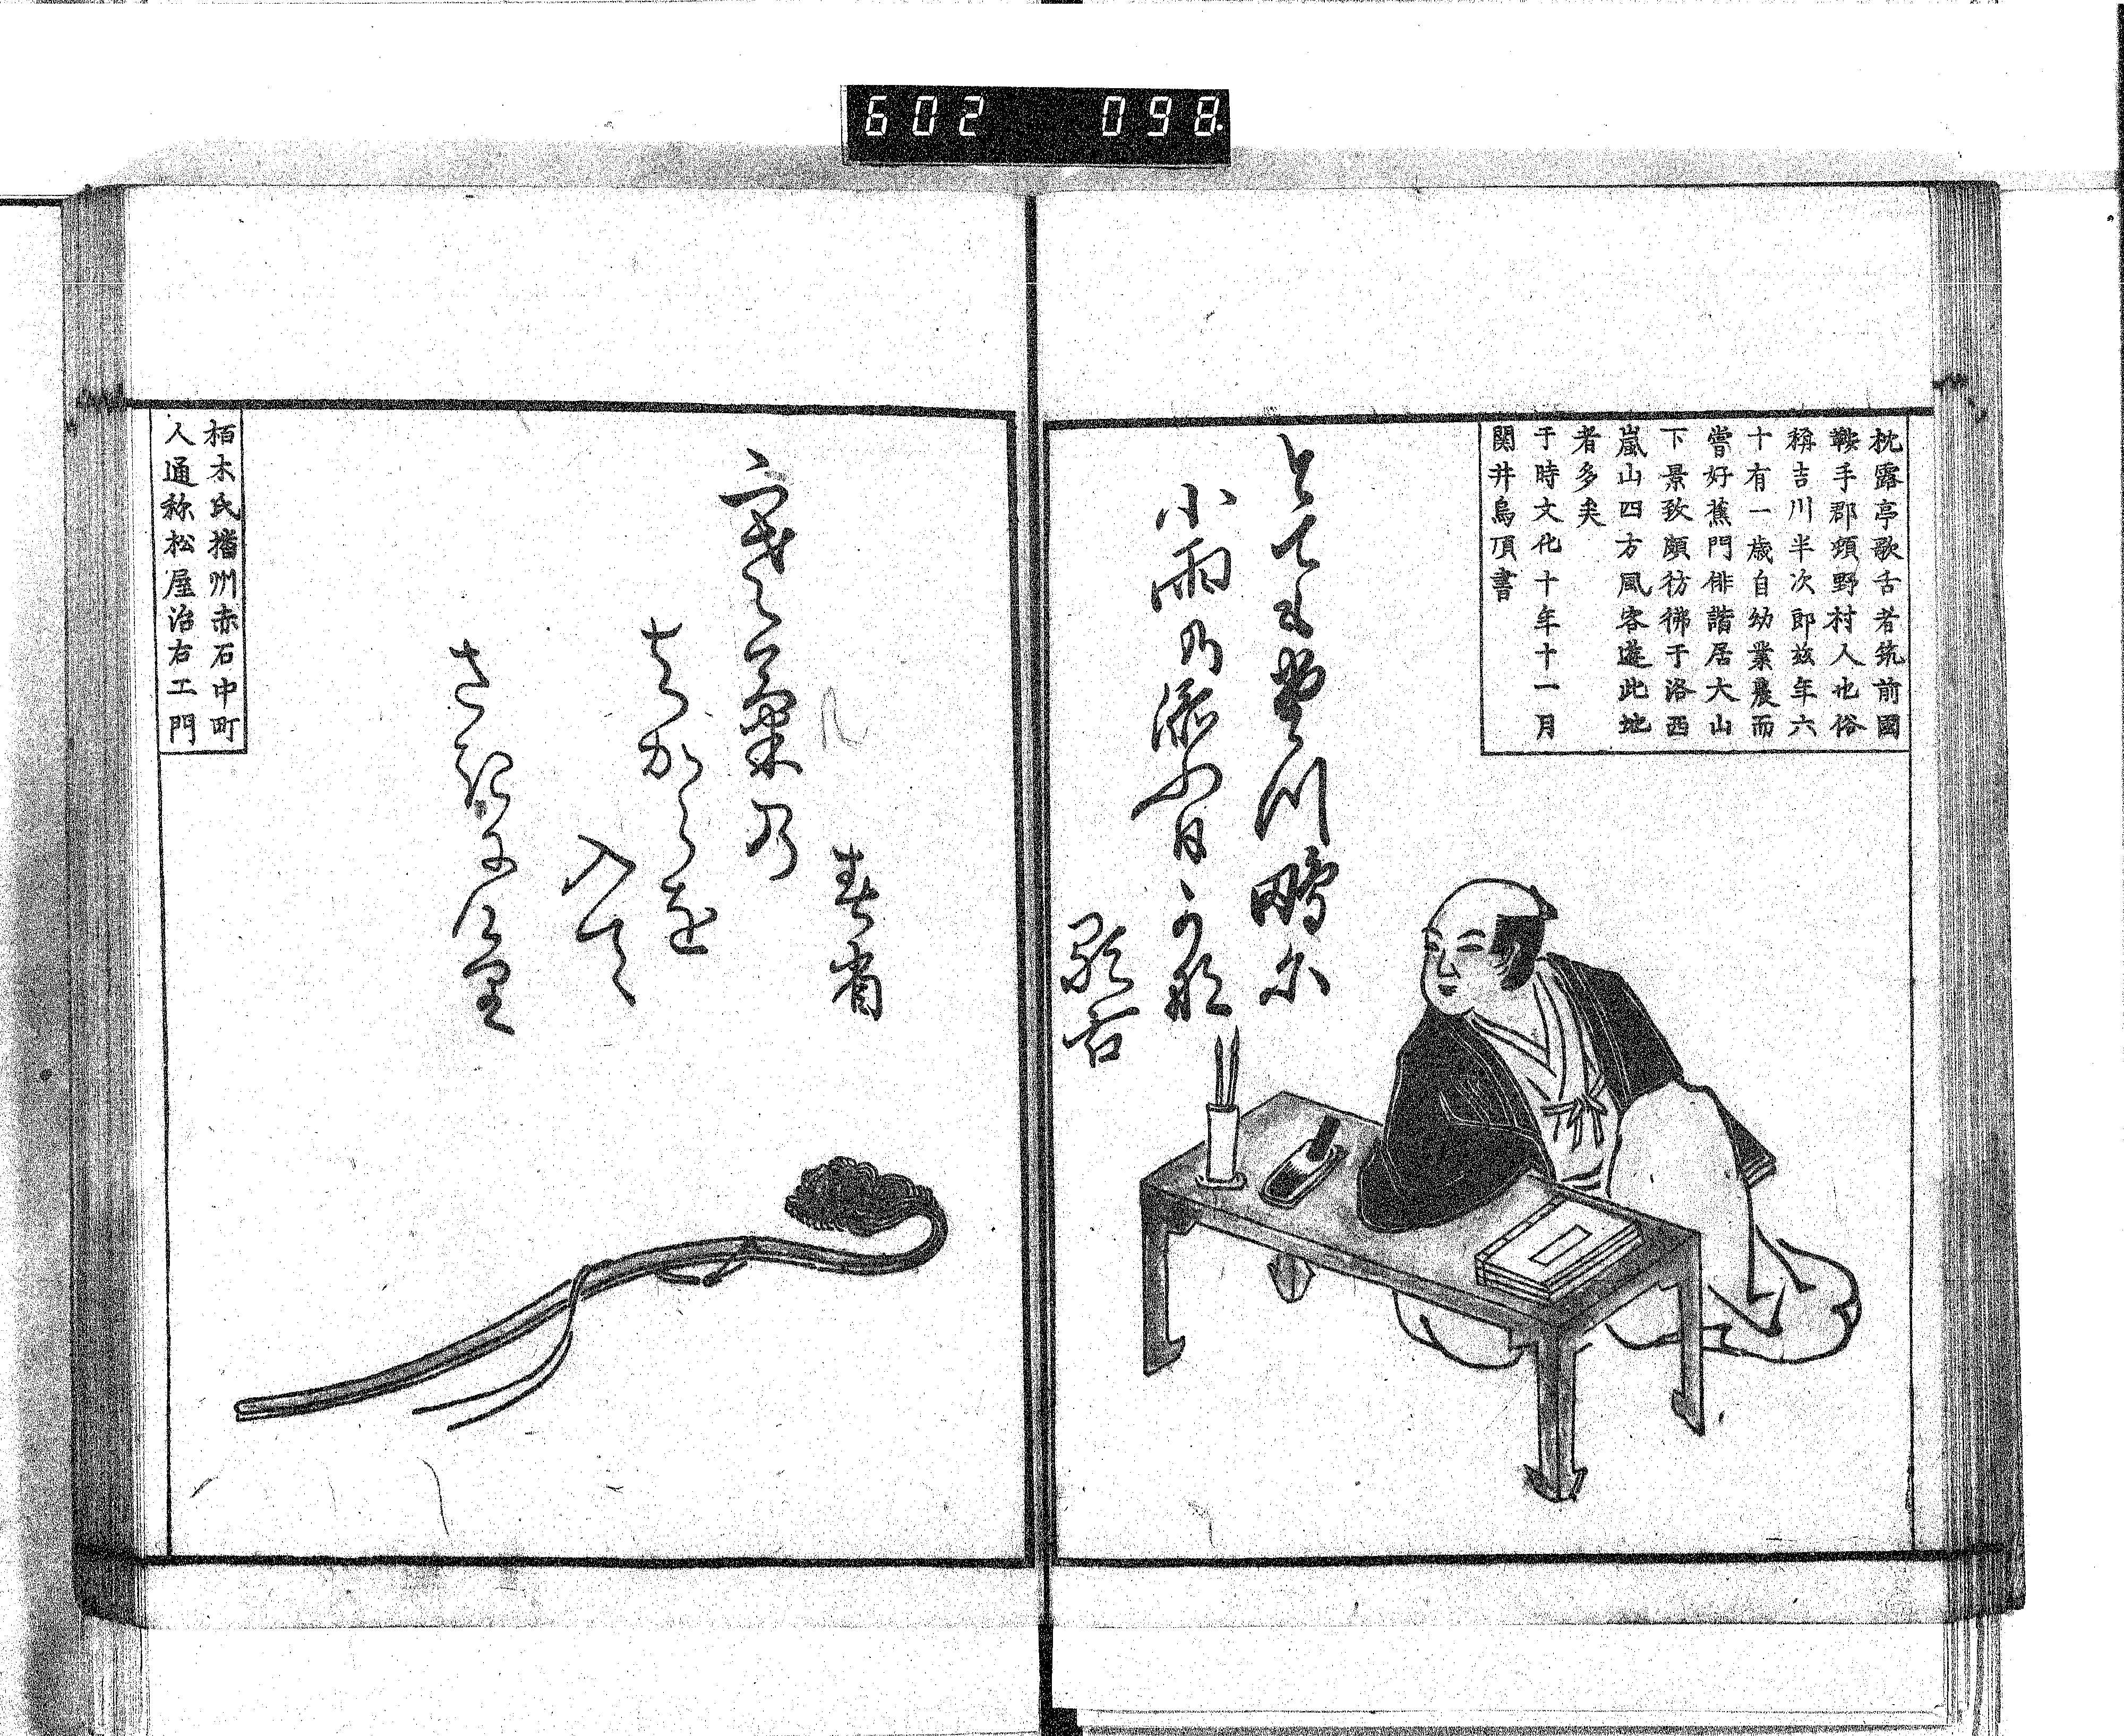 602 098
枕露亭歌舌者筑前國
鞍手郡頓野村人也俗
稱吉川半次郎茲年六
十有一歳自幼業農而
嘗好蕉門俳諧居大山
下景致頗彷彿于洛西
嵐山四方風客遊此地
者多矣
于時文化十年十一月
関井烏頂書
小雨乃添ふ日可那
歌舌
春省
乃
ちからを
入て
さきにけ里
栢木氏播州赤石中町
人通称松屋治右エ門